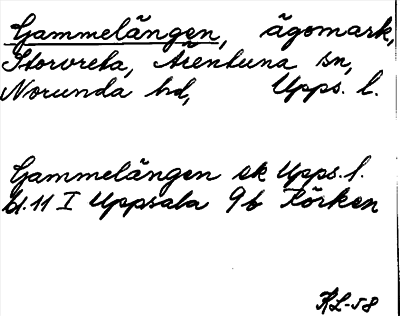 Gammelängen, ägomark,
Storvreta, Ärentuna sn,
Norunda hd, Upps. l.
Gammelängen ek Upps. l.
bl. 11 I Uppsala 9b Lörken
RL-58